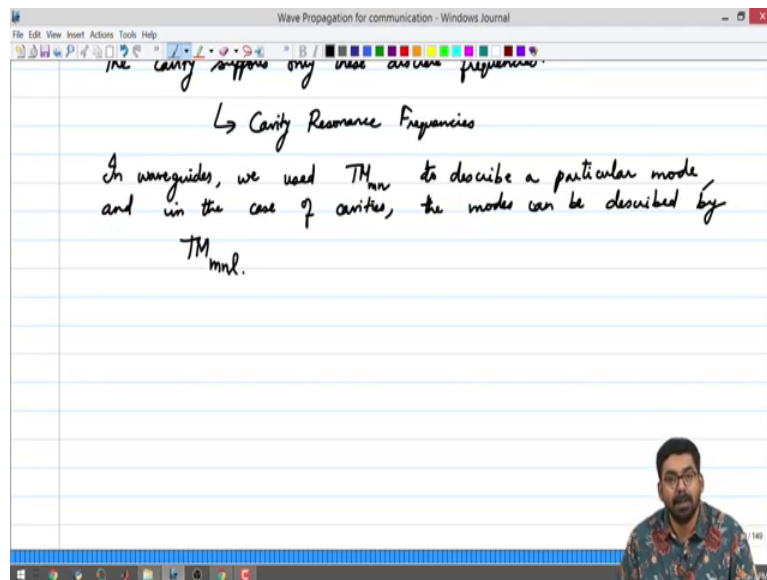 Wave Propagation for communication - Windows Journal
File Edit View Insert Actions Tools Help
The cavity supports only these discrete frequencies.
↳ Cavity Resonance Frequencies
In waveguides, we used TM_mn to describe a particular mode,
and in the case of cavities, the modes can be described by
TM_mnl.
/149